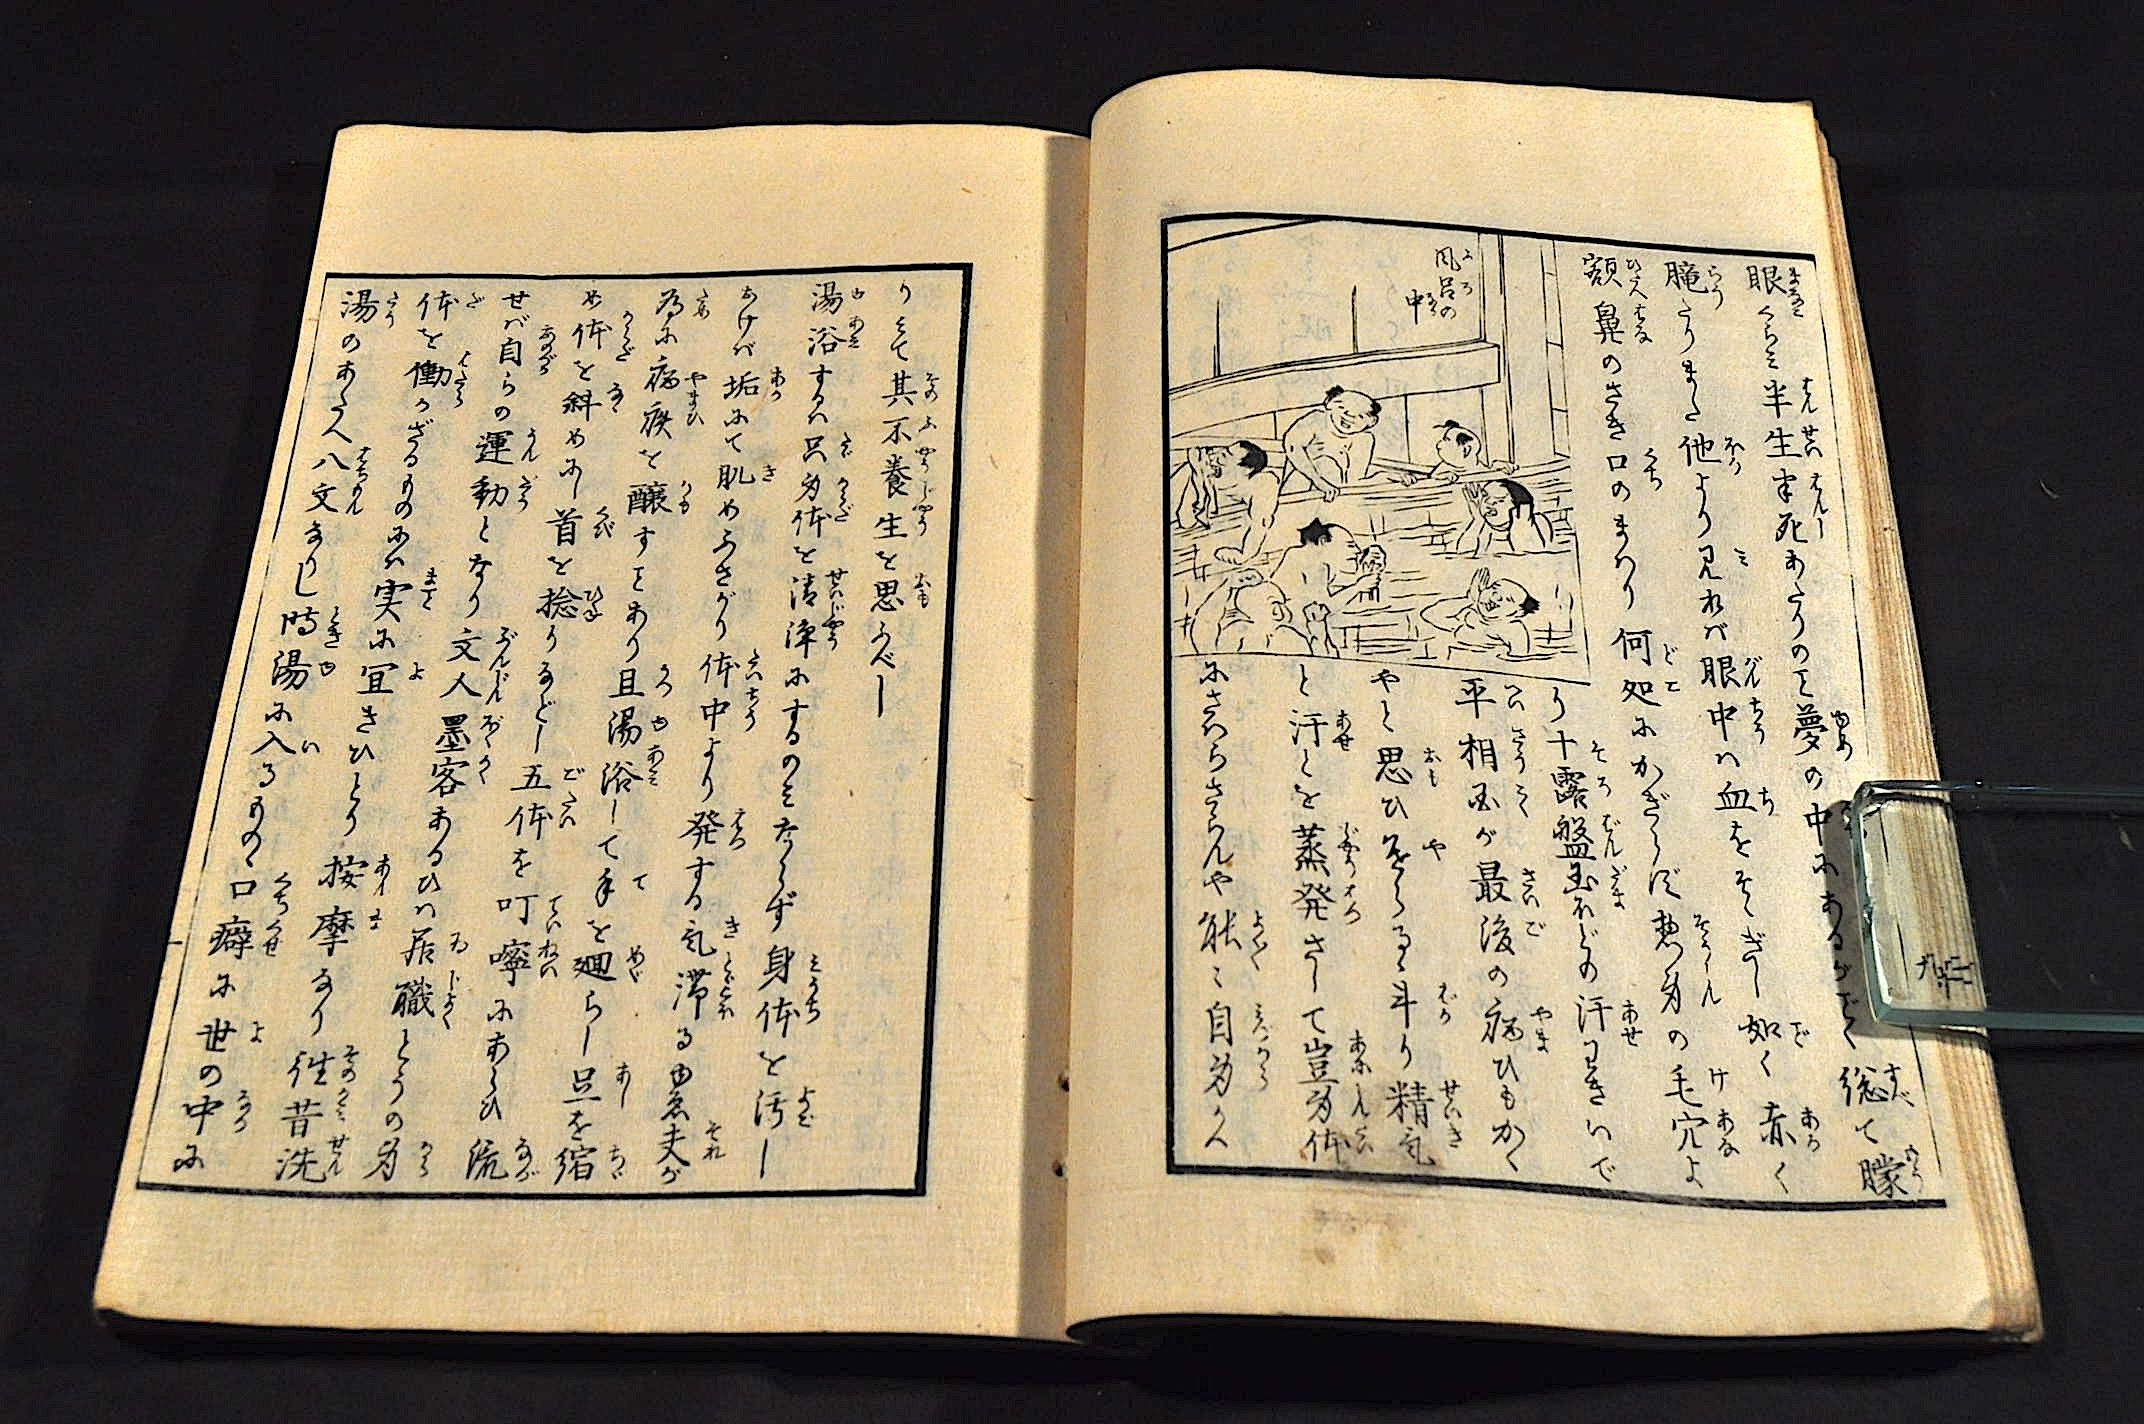 眼くらみ半生半死あたりのこと夢の中にあるがごとく総て朦
朧たりまた他より見れば眼中は血をそゝぎし如く赤く
額鼻のさき口のまはり何処にかぎらず惣身の毛穴よ
り十露盤玉ほどの汗わきいで
平相国が最後の病ひもかく
やと思ひやらるゝ斗り精気
と汗とを蒸発さして豈身体
にさはらさらんや能々自身
風呂の
中
りみて其不養生を思ふべし
湯浴するは只身体を清浄にするのみならず身体を汚し
おけば垢にて肌めふさがり体中より発する気滞るゆゑ夫が
為に病疾を醸すことあり且湯浴して手を廻らし足を縮
め体を斜めにし首を捻りなどし五体を叮嚀にあらひ流
せば自らの運動となり文人墨客あるひは居職とうの身
体を働かざるものには実に宜きひとり按摩なり往昔洗
湯のあたへ八文なりし時湯に入るものゝ口癖に世の中に